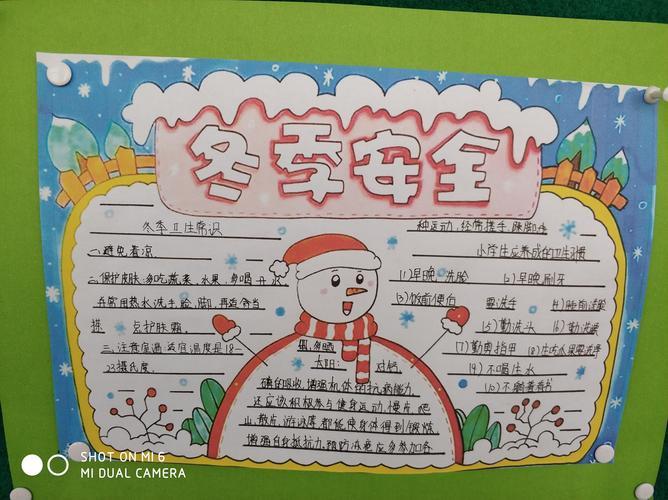 冬季安全
冬季卫生常识
一、避免着凉.
二、保护皮肤:多吃蔬菜、水果、多喝开水
并常用热水洗手、脸、脚,再适当
搽 护肤霜.
三、注意室温:适宜温度是18—
23摄氏度.
太阳:对钙、
磷的吸收,增强机体的抗病能力
还应该积极参与健身运动,慢片 爬
山,散片,游泳等都能使身体得到锻炼
增强自身抵抗力,预防冻疮应多参加各
种运动,经常搓手、跺脚等
小学生应养成的卫生习惯
(1)早晚 洗脸
(2)早晚刷牙
(3)饭前便后 要洗手
(5)勤洗头
(6)勤洗澡
(7)勤剪指甲
(8)生吃水果要洗净
(9)不喝生水
SHOT ON MI 6
MI DUAL CAMERA